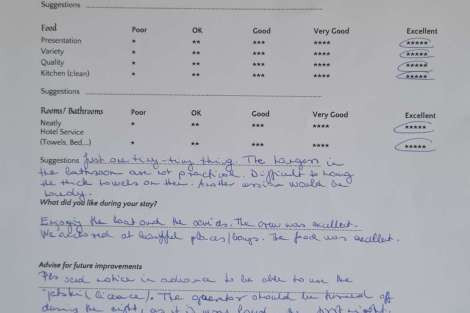 Suggestions
Food Poor OK Good Very Good Excellent
Presentation * ** *** **** *****
Variety * ** *** **** *****
Quality * ** *** **** *****
Kitchen (clean) * ** *** **** *****
Suggestions
Rooms/ Bathrooms Poor OK Good Very Good Excellent
Neatly * ** *** **** *****
Hotel Service
(Towels, Bed...) * ** *** **** *****
Suggestions Just one tiny-tiny thing. The hangers in
the bathroom are not practical. Difficult to hang
the thick towels on them. Another version would be
handy.
What did you like during your stay?
Enjoying the boat and the . The crew was excellent.
We at beautiful places/bays. The food was excellent.
Advise for future improvements
Pls send notice in advance to be able to use the
"jetski licence". The generator should be turned off
during the night, as it was loud first night.